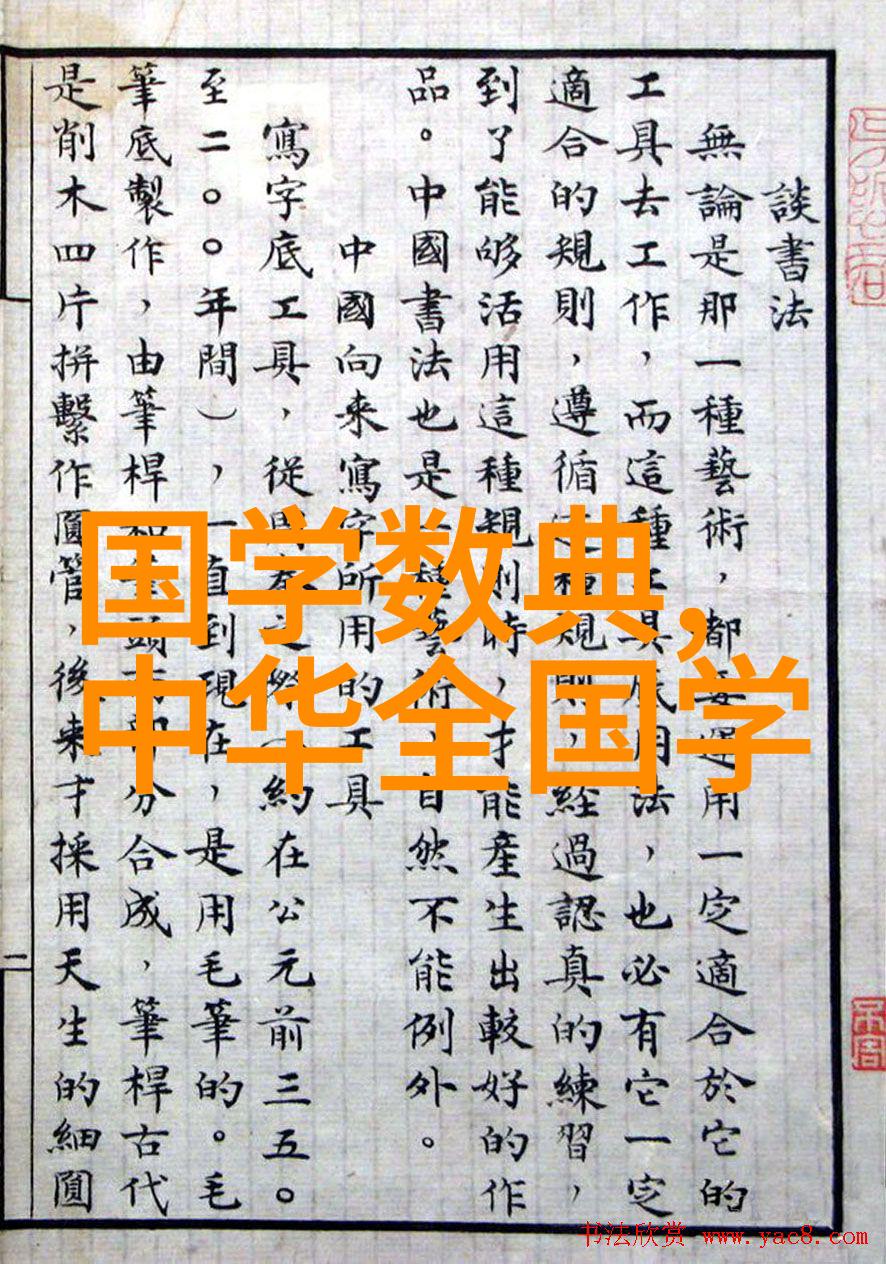 談書法
無論是那一種藝術，都要運用一定適合於它的
工具去工作，而這種工具底用法，也必有它一定
適合的規則，遵循這種規則，經過認真的練習，
到了能够活用這種規則時，才能產生出較好的作
品。中國書法也是一種藝術，自然不能例外。
中國向來寫字所用的工具
寫字底工具，從周秦之際（約在公元前三五〇
至二〇〇年間），一直到現在，是用毛筆的。毛
筆底製作，由筆桿和筆頭兩部分合成，筆桿古代
是削木四片拼繫作圓管，後來才採用天生的細圓
二
国学数典,
中华全国学
书法欣赏 www.yac8.com